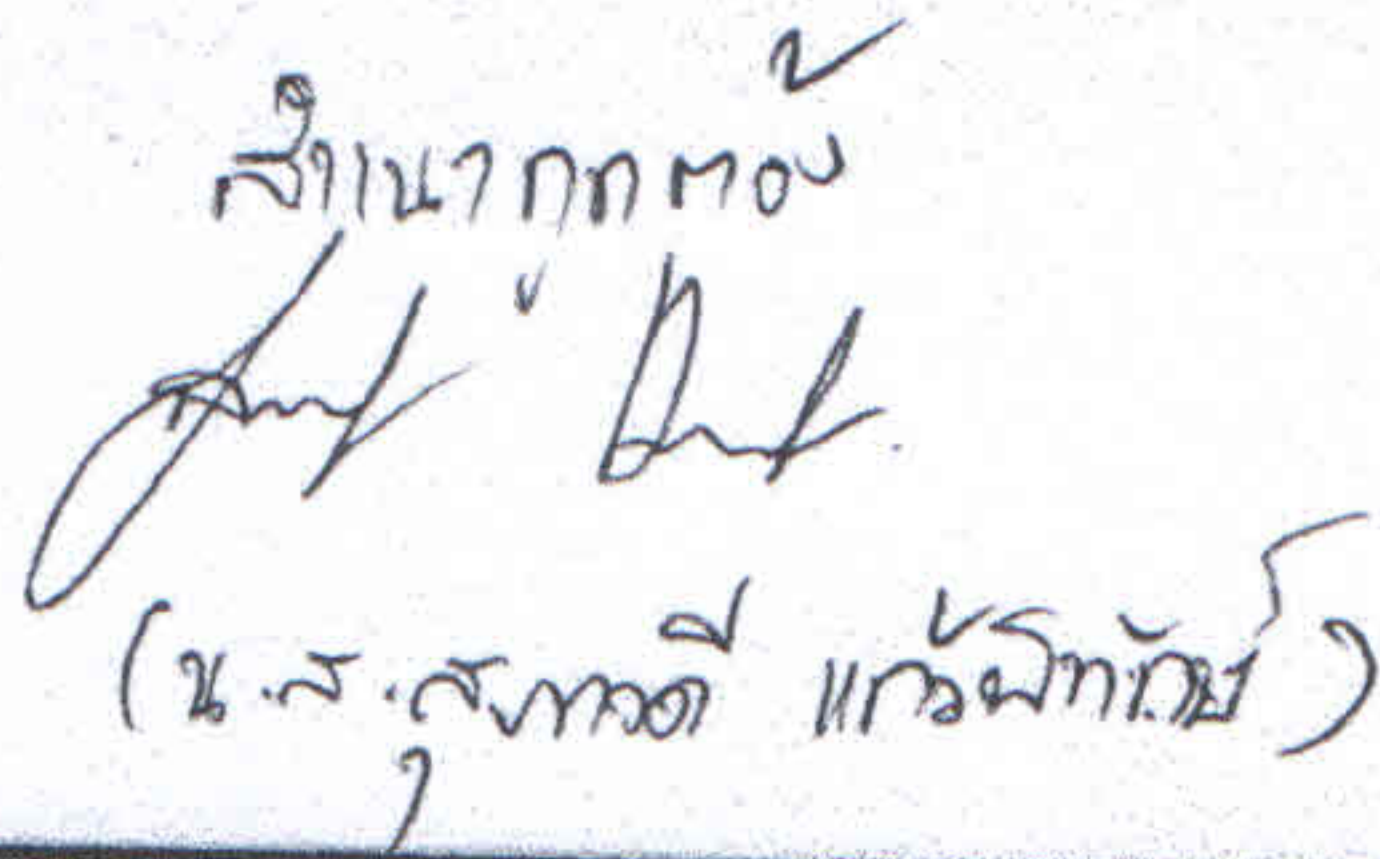 สำเนาถูกต้อง
(น.ส.สุภาวดี แก้วพิทักษ์)